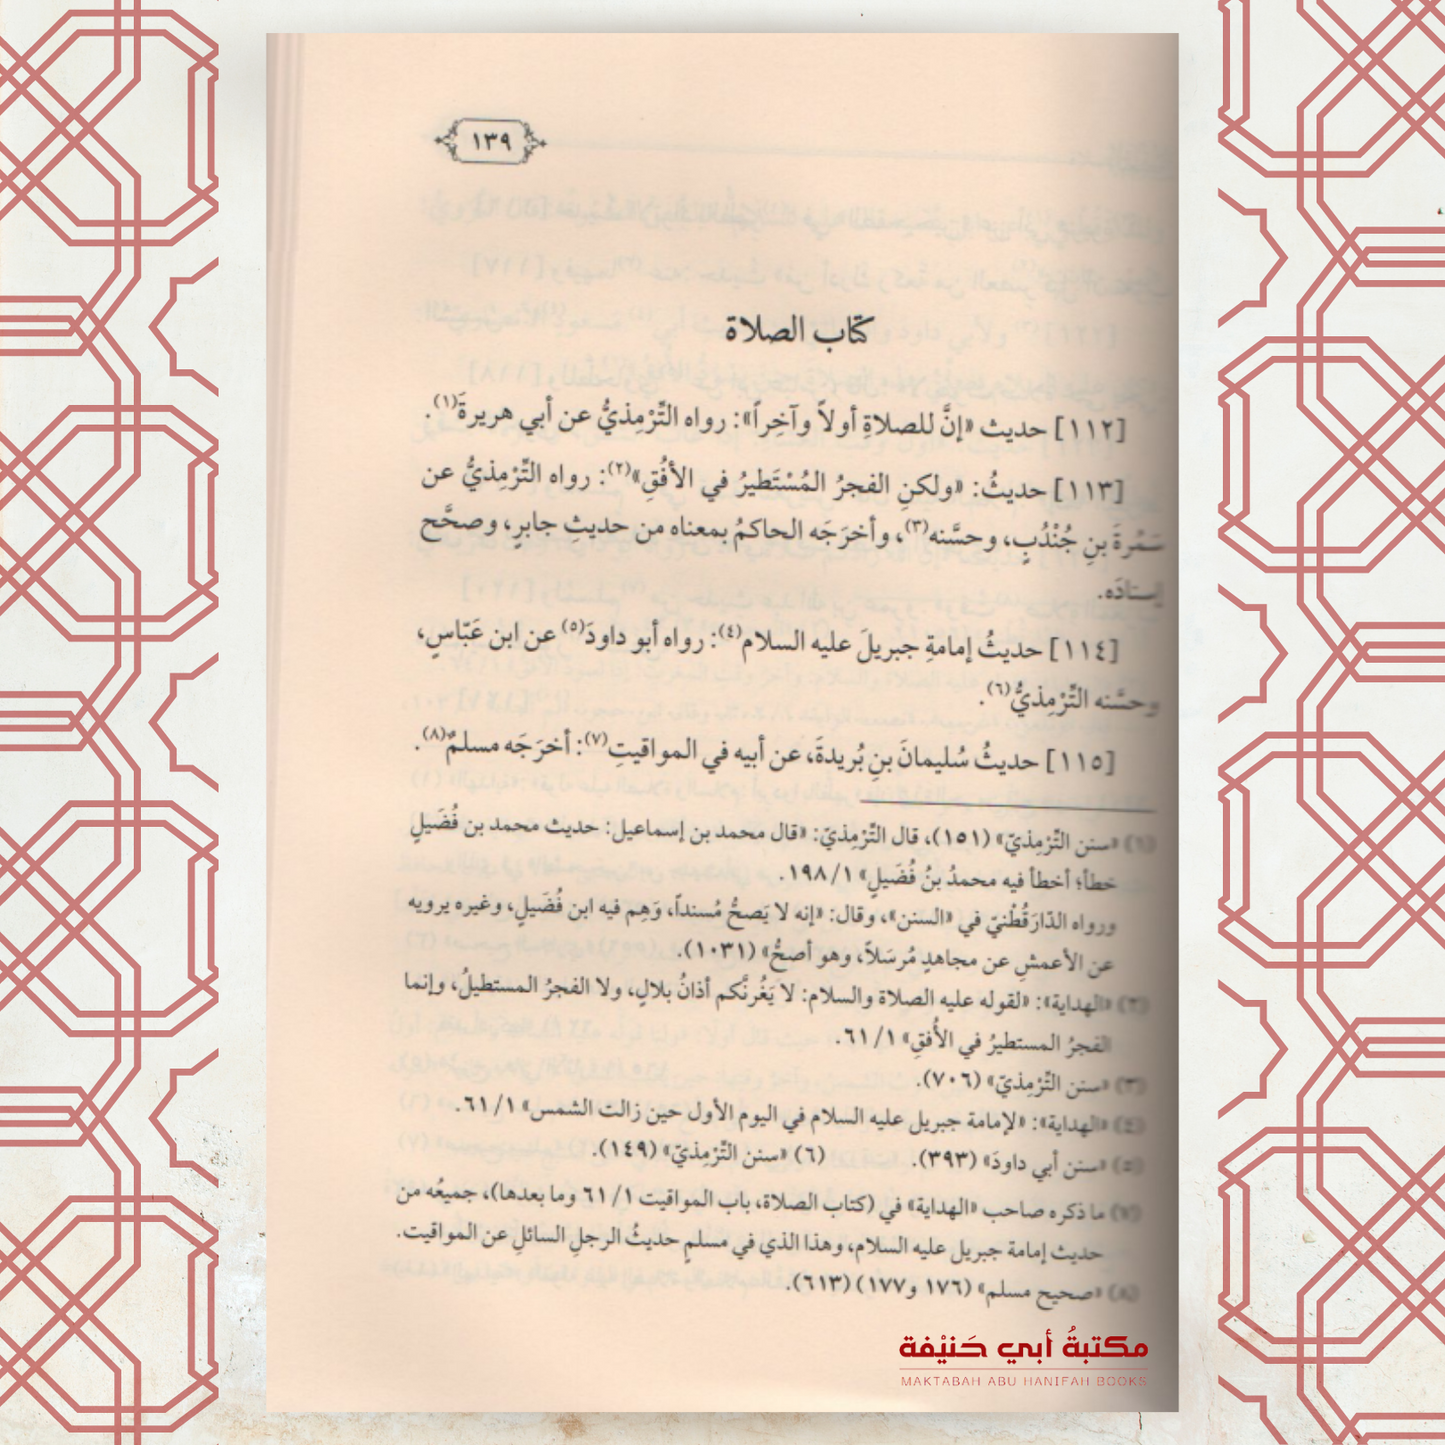 ١٣٩
كتاب الصلاة
[١١٢] حديث «إنَّ للصلاةِ أولاً وآخِراً»: رواه التِّرْمِذيُّ عن أبي هريرةَ(١).
[١١٣] حديثُ: «ولكنِ الفجرُ المُسْتَطيرُ في الأفُقِ»(٢): رواه التِّرْمِذيُّ عن
سَمُرةَ بنِ جُنْدُبٍ، وحسَّنه(٣)، وأخرَجَه الحاكمُ بمعناه من حديثِ جابرٍ، وصحَّح
إسنادَه.
[١١٤] حديثُ إمامةِ جبريلَ عليه السلام(٤): رواه أبو داودَ(٥) عن ابن عَبّاسٍ،
وحسَّنه التِّرْمِذيُّ(٦).
[١١٥] حديثُ سُليمانَ بنِ بُريدةَ، عن أبيه في المواقيتِ(٧): أخرَجَه مسلمٌ(٨).
(١) «سنن التِّرْمِذيّ» (١٥١)، قال التِّرْمِذيّ: «قال محمد بن إسماعيل: حديث محمد بن فُضَيلٍ
خطأ؛ أخطأ فيه محمدُ بنُ فُضَيلٍ» ١/ ١٩٨.
ورواه الدّارَقُطْنيّ في «السنن»، وقال: «إنه لا يَصحُّ مُسنداً، وَهِم فيه ابن فُضَيلٍ، وغيره يرويه
عن الأعمشِ عن مجاهدٍ مُرسَلاً، وهو أصحُّ» (١٠٣١).
(٢) «الهداية»: «لقوله عليه الصلاة والسلام: لا يَغُرنَّكم أذانُ بلالٍ، ولا الفجرُ المستطيلُ، وإنما
الفجرُ المستطيرُ في الأُفقِ» ١/ ٦١.
(٣) «سنن التِّرْمِذيّ» (٧٠٦).
(٤) «الهداية»: «لإمامة جبريل عليه السلام في اليوم الأول حين زالت الشمس» ١/ ٦١.
(٥) «سنن أبي داودَ» (٣٩٣). (٦) «سنن التِّرْمِذيّ» (١٤٩).
(٧) ما ذكره صاحب «الهداية» في (كتاب الصلاة، باب المواقيت ١/ ٦١ وما بعدها)، جميعُه من
حديث إمامة جبريل عليه السلام، وهذا الذي في مسلمٍ حديثُ الرجلِ السائلِ عن المواقيت.
(٨) «صحيح مسلم» (١٧٦ و١٧٧) (٦١٣).
مكتبةُ أبي حَنيْفة
MAKTABAH ABU HANIFAH BOOKS